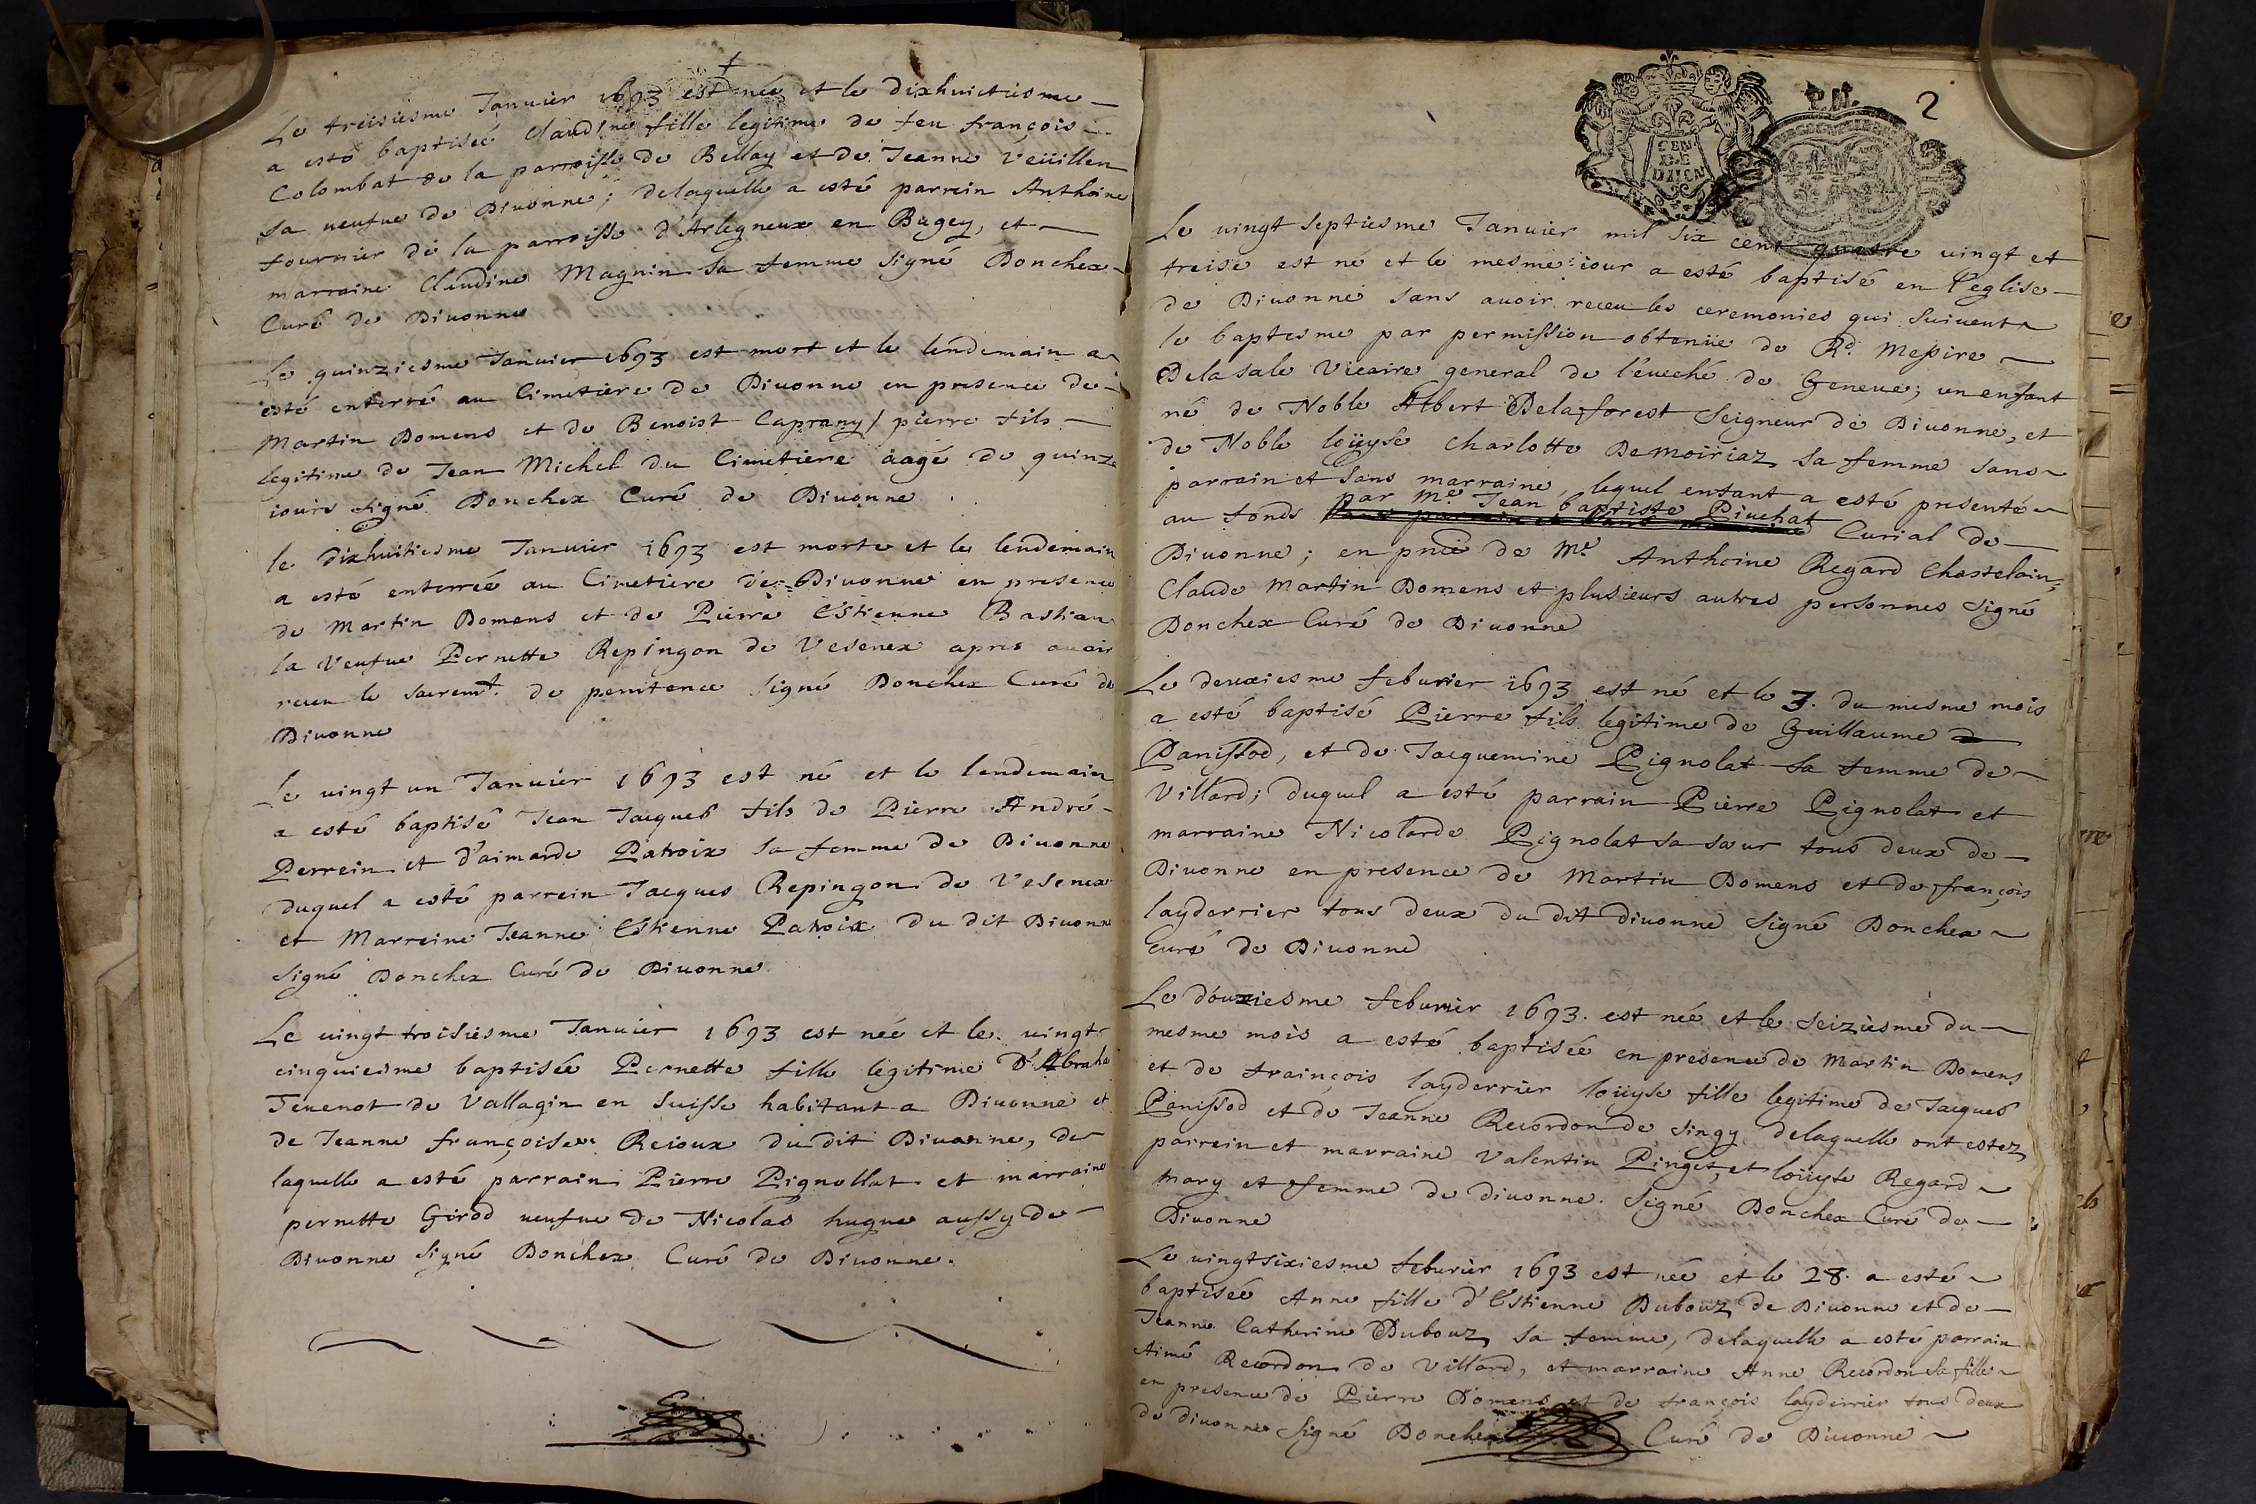 Le treisiesme Januier 1693 est née et le dixhuictiesme
a esté baptiseé Claudine fille legitime de feu françois
Colombat de la parroisse de Bellay et de Jeanne Veüillen
sa veufue de Diuonne; delaquelle a esté parrein Anthoine
fournier de la parroisse d'Arlegneux en Bugey, et
marraine Claudine Magnin sa femme signé Donchex
Curé de Diuonne
Le quinziesme Januier 1693 est mort et le lendemain a
esté enterré au Cimetiere de Diuonne en presence de
Martin Domens et de Benoist Caprany / pierre fils
legitime de Jean Michel du Cimetiere aagé de quinze
iours signé Donchex Curé de Diuonne
le dixhuitiesme Januier 1693 est morte et le lendemain
a esté enterreé au Cimetiere de Diuonne en presence
de Martin Domens et de Pierre Estienne Bastian
la Veufue Pernette Repingon de Vesenex apres auoir
receu le sacremt. de penitence signé Donchex Curé de
Diuonne
Le uingt un Januier 1693 est né et le lendemain
a esté baptisé Jean Jacques fils de Pierre André
Perrein et d'aimarde Patroix sa femme de Diuonne
duquel a esté parrein Jacques Repingon de Vesenex
et Marreine Jeanne Estienne Patroix du dit Diuonne
signé Donchex Curé de Diuonne
Le uingt troisiesme Januier 1693 est neé et le uingt
cinquiesme baptisée Pernette fille legitime D'Abraha
Jeuenot de Vallagin en Suisse habitant a Diuonne et
de Jeanne françoise Reioux du dit Diuonne, de
laquelle a esté parrain Pierre Pignollat et marraine
pernette Girod ueufue de Nicolas hugue aussy de
Diuonne signé Donchex Curé de Diuonne.
P.N. 2
GEN
DE
Le uingt septiesme Januier mil six cent quatre uingt et
treise est né et le mesme iour a esté baptisé en l'eglise
de Diuonne sans auoir receu les ceremonies qui suiuent
le baptesme par permission obtenüe de Rd. Messire
Delasale Vicaire general de l'éueché de Geneue; un enfant
né de Noble Albert Delaforest Seigneur de Diuonne, et
de Noble loüyse charlotte Demoiriaz sa femme sans
parrain et sans marraine, lequel enfant a esté presenté
par Me. Jean baptiste Piuchat
au fonds Curial de
Diuonne; en pnce de Me Anthoine Regard Chastelain,
Claude Martin Domens et plusieurs autres personnes signé
Donchex Curé de Diuonne
Le deuxiesme feburier 1693 est né et le 3. du mesme mois
a esté baptisé Pierre fils legitime de Guillaume
Panissod, et de Jacquemine Pignolat sa femme de
Villard; duquel a esté parrain Pierre Pignolat et
marraine Nicolarde Pignolat sa sœur tous deux de
Diuonne en presence de Martin Domens et de françois
layderrier tous deux du dit diuonne signé Donchex
Curé de Diuonne
Le douziesme feburier 1693. est neé et le seiziesme du
mesme mois a esté baptiseé en presence de Martin Domens
et de françois layderrier loüyse fille legitime de Jacques
Panissod et de Jeanne Recordon de singy delaquelle ont estez
parrein et marraine Valentin Pinget, et loüyse Regard
mary et femme de diuonne. signé Donchex Curé de
Diuonne
Le uingtsixiesme feburier 1693 est neé et le 28. a esté
baptiseé Anne fille d'Estienne Dubouz de Diuonne et de
Jeanne Catherine Dubouz sa femme, delaquelle a esté parrain
Aimé Recordon de Villard, et marraine Anne Recordon sa fille
en presence de Pierre Domens et de françois layderrier tous deux
de diuonne signé Donchex Curé de Diuonne